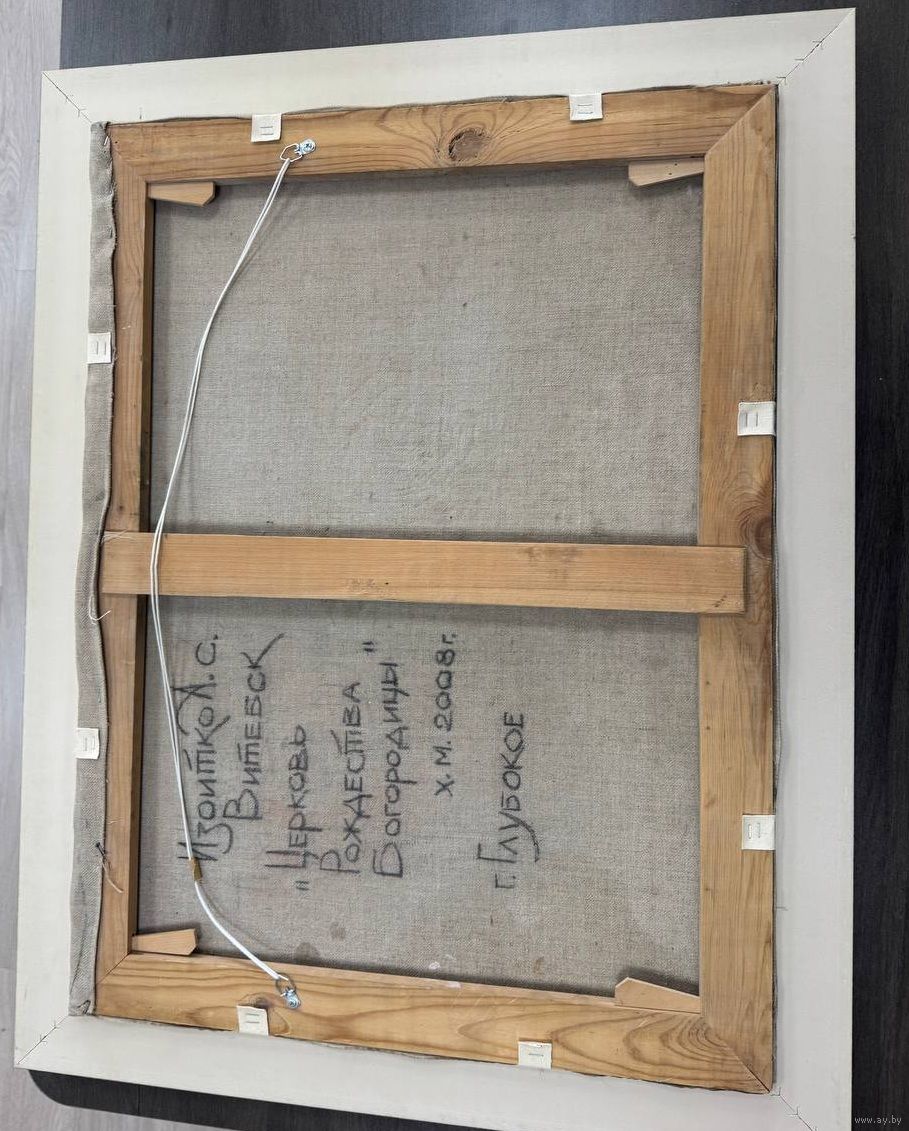 Изоитко А. С.
Витебск
"Церковь
Рождества
Богородицы"
х. м. 2008г.
г. Глубокое
www.ay.by